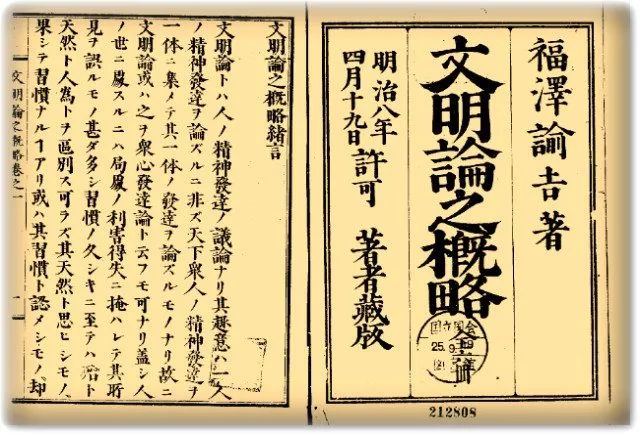 福澤諭吉著
文明論之概略
明治八年
四月十九日
許可
著者藏版
25.9.
212808
文明論之概略緒言
文明論トハ人ノ精神發達ノ議論ナリ其趣意ハ一人
ノ精神發達ヲ論ズルニ非ズ天下衆人ノ精神發達ヲ
一体ニ集メテ其一体ノ發達ヲ論ズルモノナリ故ニ
文明論或ハ之ヲ衆心發達論ト云フモ可ナリ盖シ人
ノ世ニ處スルニハ局處ノ利害得失ニ掩ハレテ其所
見ヲ誤ルモノ甚ダ多シ習慣ノ久シキニ至テハ殆ト
天然ト人為トヲ區別ス可ラズ其天然ト思ヒシモノ、
果シテ習慣ナルヿアリ或ハ其習慣ト認メシモノ、却
文明論之概略卷之一
一